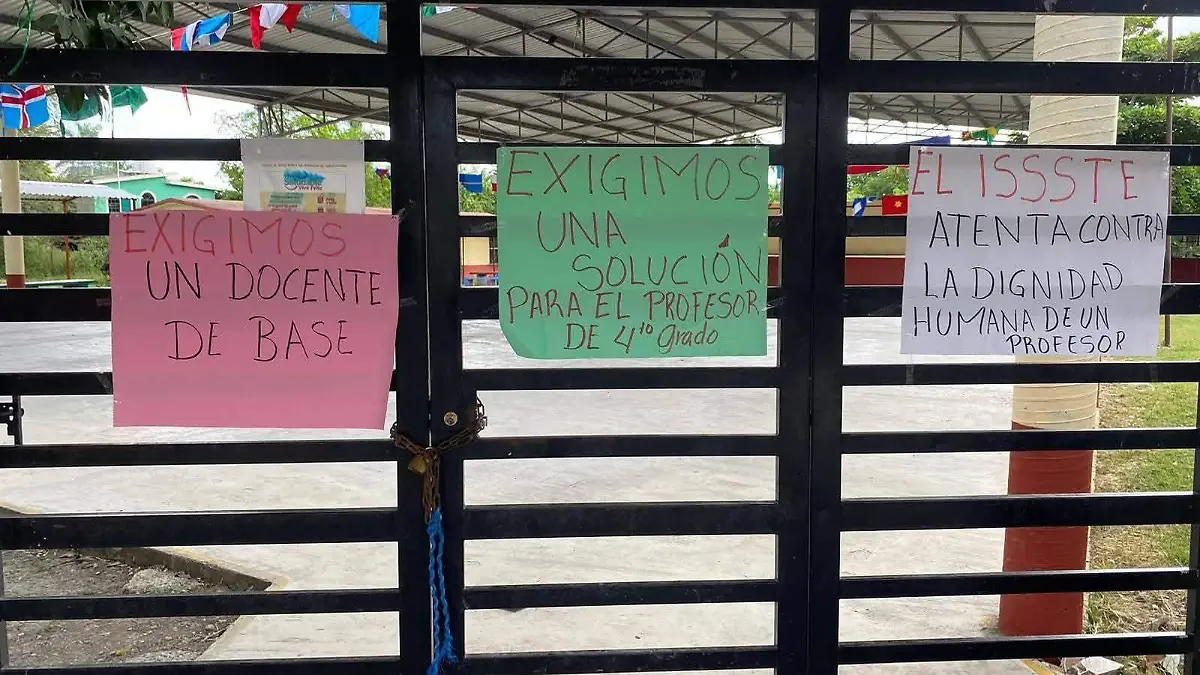 EXIGIMOS
UN DOCENTE
DE BASE
EXIGIMOS
UNA
SOLUCIÓN
PARA EL PROFESOR
DE 4to Grado
EL ISSSTE
ATENTA CONTRA
LA DIGNIDAD
HUMANA DE UN
PROFESOR